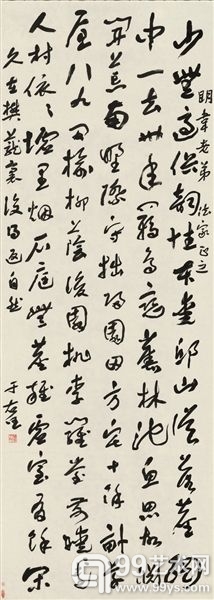 明韋老弟法家正之
少無適俗韻性本愛邱山誤落塵網
中一去卅年羈鳥戀舊林池魚思故淵
開荒南野際守拙歸園田方宅十餘畝草
屋八九間榆柳蔭後園桃李羅堂前曖曖遠
人村依依墟里烟戶庭無塵雜虛室有餘閑
久在樊籠裏復得返自然
于右任
99艺术网